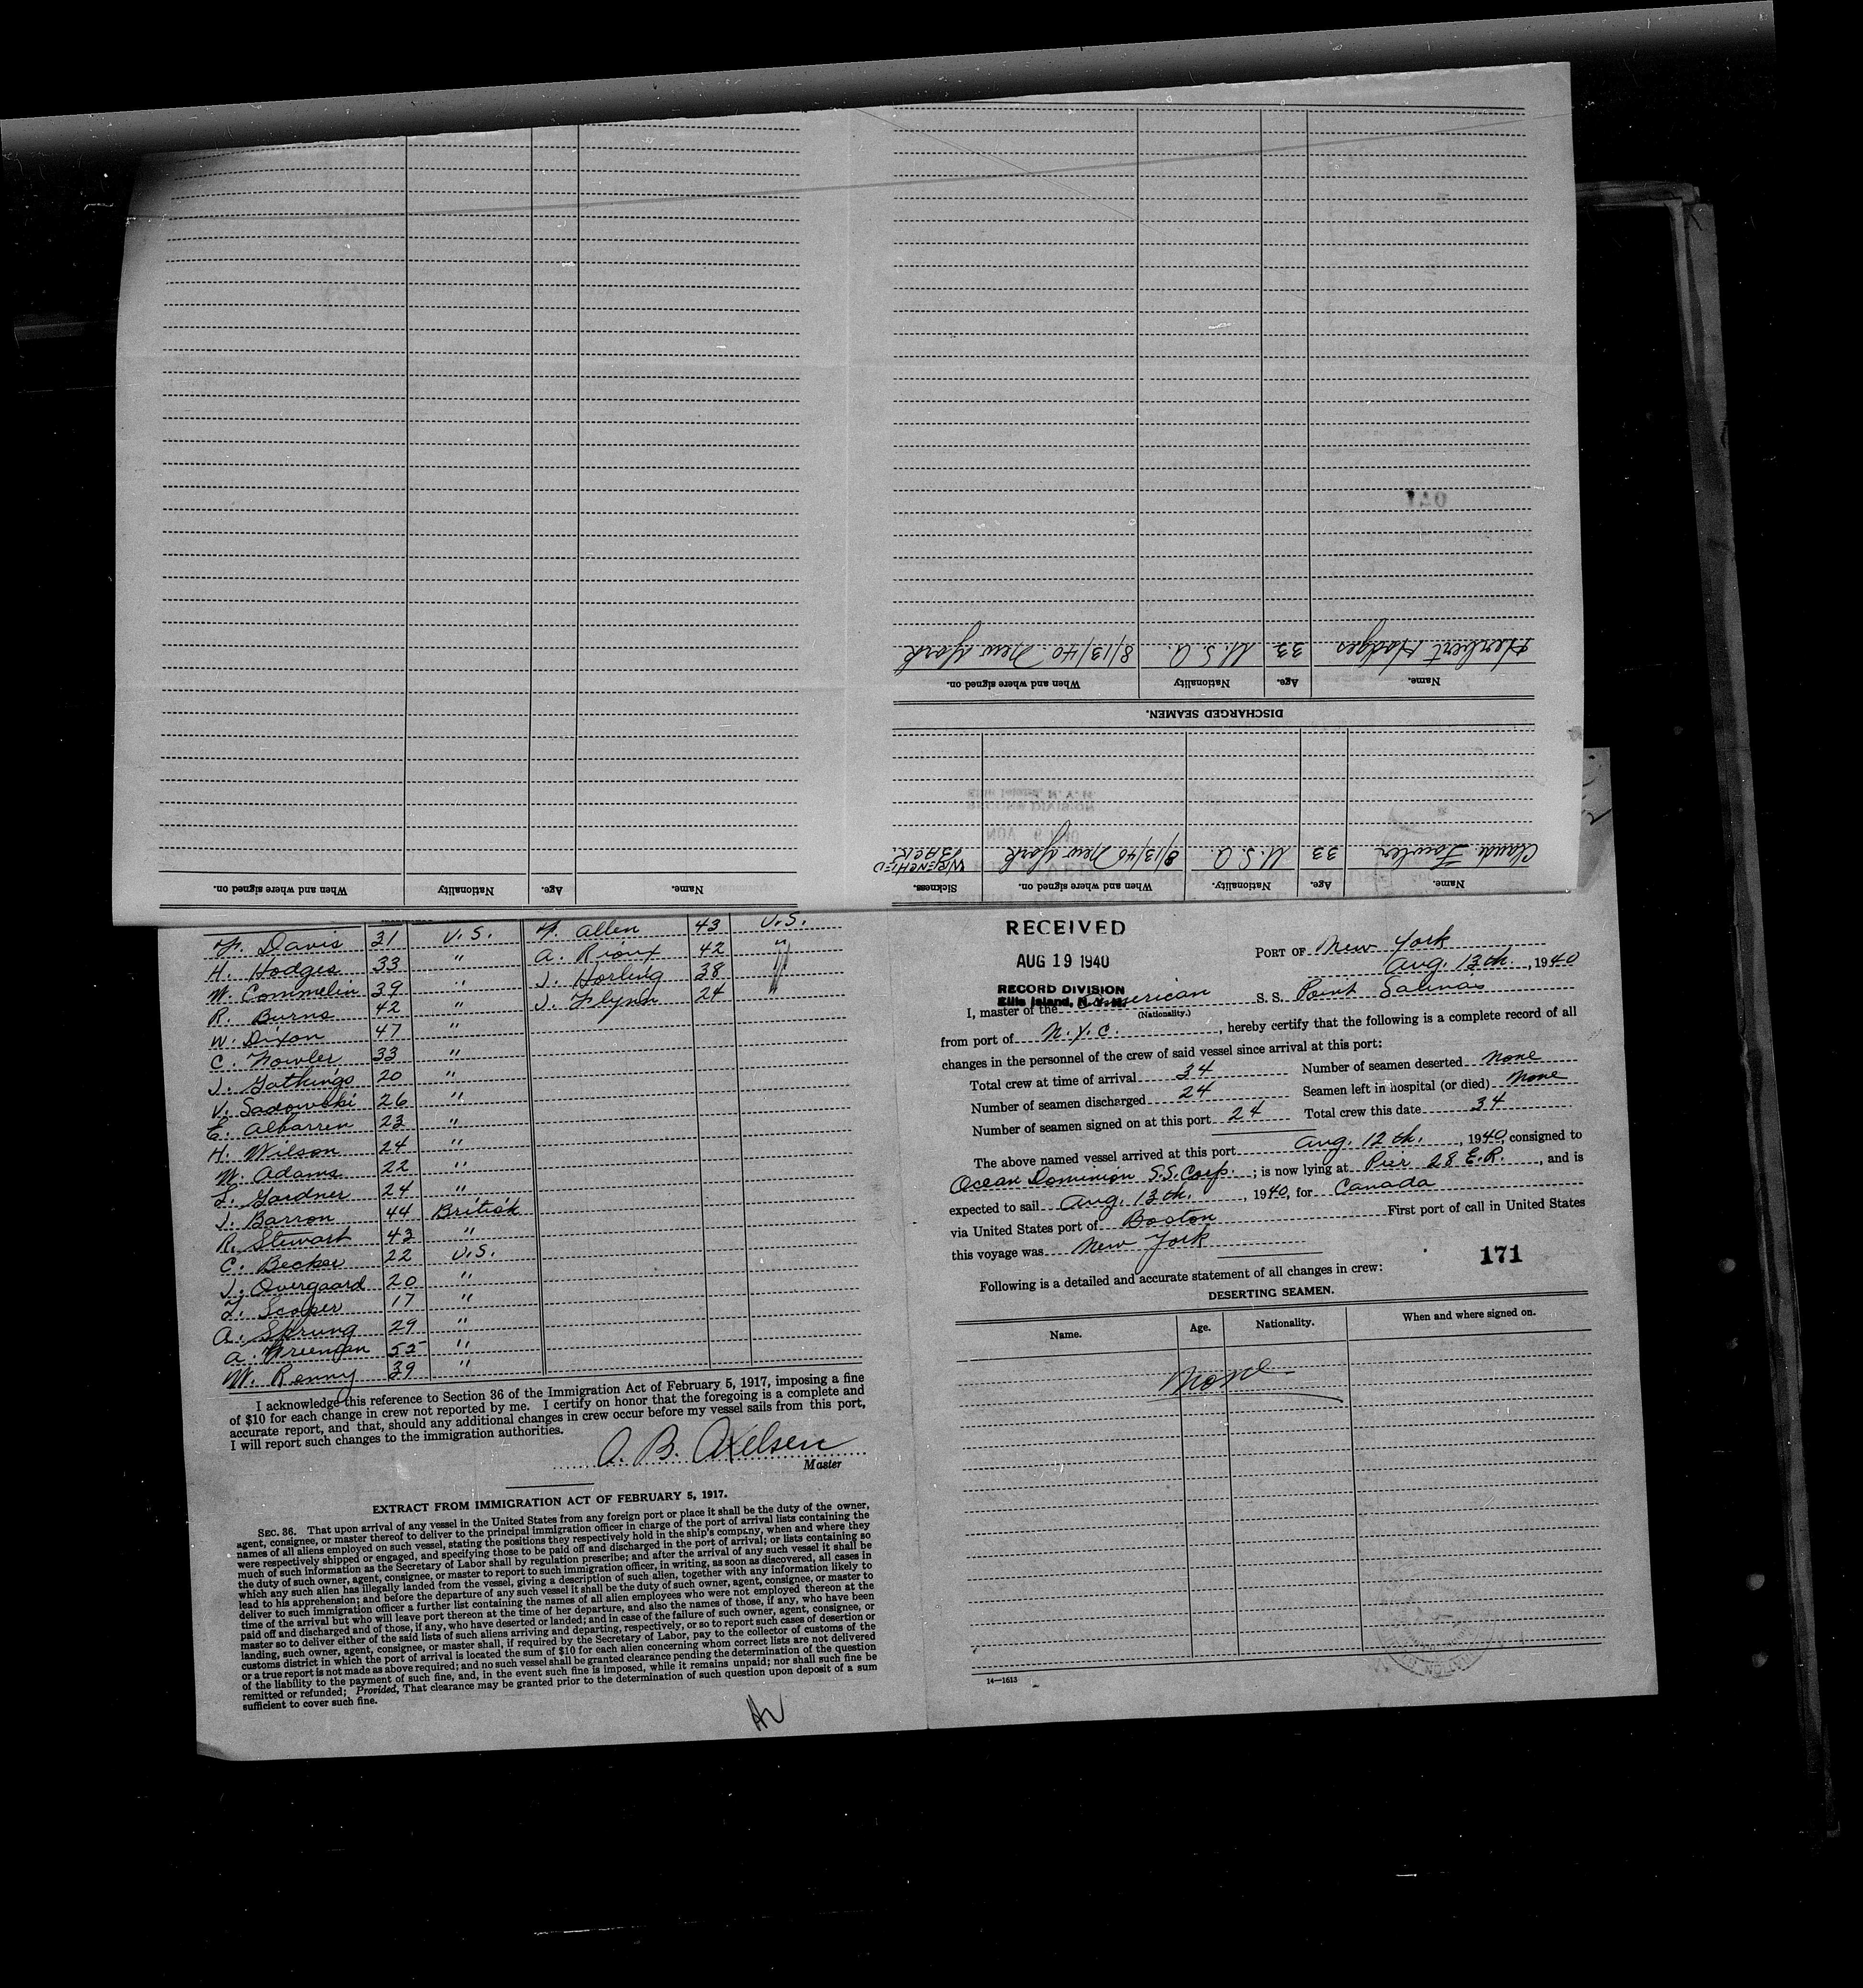 When and where signed on.
Nationality
Age.
Name.
Herbert Hodges 33 U.S.A. 8/13/40 New York
Name. Age. Nationality When and where signed on.
DISCHARGED SEAMEN.
Claude Fowler 33 U.S.A. 8/13/40 New York WRENCHED BACK.
Name. Age. Nationality. When and where signed on. Sickness.
Davis 31 U.S. Allen 43 U.S.
H. Hodges 33 " A. Rioux 42 "
W. Commelin 39 " J. Horling 38 "
R. Burns 42 " J. Flynn 24 "
W. Dixon 47 "
C. Fowler 33 "
J. Gathings 20 "
V. Sadowski 26 "
E. Albarren 23 "
H. Wilson 24 "
W. Adams 22 "
L. Gardner 24 "
J. Barron 44 British
R. Stewart 43 "
C. Becker 22 U.S.
J. Overgaard 20 "
Scoper 17 "
A. Sprung 29 "
A. Freeman 55 "
W. Renny 39 "
I acknowledge this reference to Section 36 of the Immigration Act of February 5, 1917, imposing a fine
of $10 for each change in crew not reported by me. I certify on honor that the foregoing is a complete and
accurate report, and that, should any additional changes in crew occur before my vessel sails from this port,
I will report such changes to the immigration authorities.
A. B. Axelsen
Master
EXTRACT FROM IMMIGRATION ACT OF FEBRUARY 5, 1917.
SEC. 36. That upon arrival of any vessel in the United States from any foreign port or place it shall be the duty of the owner,
agent, consignee, or master thereof to deliver to the principal immigration officer in charge of the port of arrival lists containing the
names of all aliens employed on such vessel, stating the positions they respectively hold in the ship's company, when and where they
were respectively shipped or engaged, and specifying those to be paid off and discharged in the port of arrival; or lists containing so
much of such information as the Secretary of Labor shall by regulation prescribe; and after the arrival of any such vessel it shall be
the duty of such owner, agent, consignee, or master to report to such immigration officer, in writing, as soon as discovered, all cases in
which any such alien has illegally landed from the vessel, giving a description of such alien, together with any information likely to
lead to his apprehension; and before the departure of any such vessel it shall be the duty of such owner, agent, consignee, or master to
deliver to such immigration officer a further list containing the names of all alien employees who were not employed thereon at the
time of the arrival but who will leave port thereon at the time of her departure, and also the names of those, if any, who have been
paid off and discharged and of those, if any, who have deserted or landed; and in case of the failure of such owner, agent, consignee, or
master so to deliver either of the said lists of such aliens arriving and departing, respectively, or so to report such cases of desertion or
landing, such owner, agent, consignee, or master shall, if required by the Secretary of Labor, pay to the collector of customs of the
customs district in which the port of arrival is located the sum of $10 for each alien concerning whom correct lists are not delivered
or a true report is not made as above required; and no such vessel shall be granted clearance pending the determination of the question
of the liability to the payment of such fine, and, in the event such fine is imposed, while it remains unpaid; nor shall such fine be
remitted or refunded; Provided, That clearance may be granted prior to the determination of such question upon deposit of a sum
sufficient to cover such fine.
RECEIVED
AUG 19 1940
RECORD DIVISION
Ellis Island, N. Y. H.
PORT OF New York
Aug. 13th., 1940
I, master of the American S. S. Point Salinas
(Nationality.)
from port of N.Y.C., hereby certify that the following is a complete record of all
changes in the personnel of the crew of said vessel since arrival at this port:
Total crew at time of arrival 34 Number of seamen deserted None
Number of seamen discharged 24 Seamen left in hospital (or died) None
Number of seamen signed on at this port 24 Total crew this date 34
The above named vessel arrived at this port Aug. 12th., 1940, consigned to
Ocean Dominion S.S. Corp.; is now lying at Pier 28 E.R., and is
expected to sail Aug. 13th., 1940, for Canada
via United States port of Boston First port of call in United States
this voyage was New York
171
Following is a detailed and accurate statement of all changes in crew:
DESERTING SEAMEN.
Name. Age. Nationality. When and where signed on.
None
14—1613